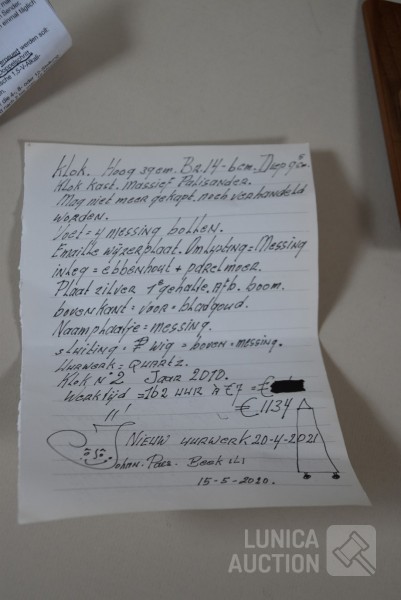 Klok. Hoog 39cm. Br. 14-6cm. Diep 9 cm.
Klok kast. Massief Palisander.
Mag niet meer gekapt, noch verhandeld
worden.
Voet = 4 messing bollen.
Emaille wijzerplaat. Omlijsting = Messing
inleg = ebbenhout + parelmoer.
Plaat zilver 1e gehalte. Afb. boom.
bovenkant = voor = bladgoud.
Naamplaatje = messing.
sluiting = wig = boven = messing.
Uurwerk = Quartz.
Klok No 2 Jaar 2010.
Werktijd = 162 uur à €7 = €
€ 1134
Nieuw uurwerk 20-4-2021
Johan.
15-5-2020.
LUNICA
AUCTION